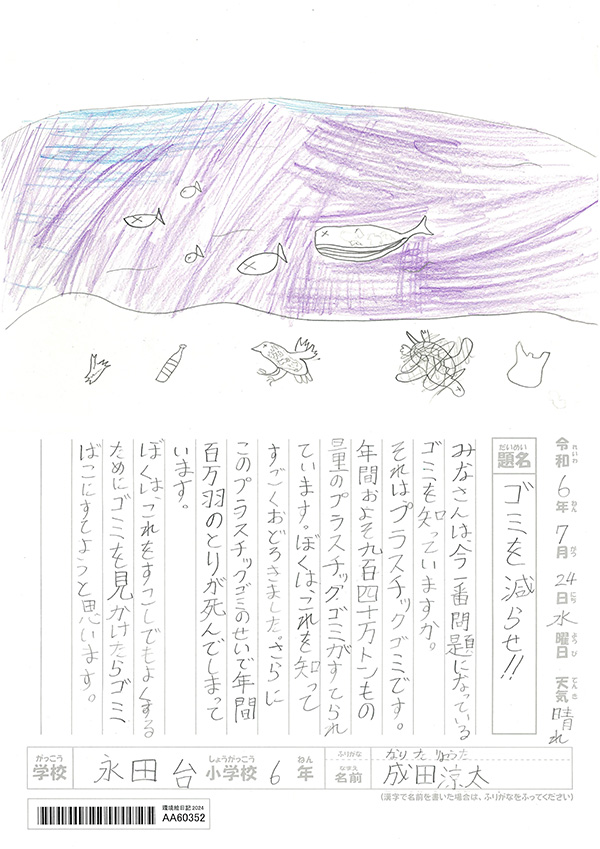 令和6年7月24日水曜日 天気 晴れ
れいわ ねん がつ にち ようび てんき
だいめい
題名
ゴミを減らせ!!
みなさんは今一番問題になっている
ゴミを知っていますか。
それはプラスチックゴミです。
年間およそ九百四十万トンもの
量のプラスチックゴミがすてられ
ています。ぼくは、これを知って
すごくおどろきました。さらに
このプラスチックゴミのせいで年間
百万羽のとりが死んでしまって
います。
ぼくは、これをすこしでもよくする
ためにゴミを見かけたらゴミ
ばこにすてようと思います。
がっこう しょうがっこう ねん
学校 永田台小学校 6年
ふりがな なりたりょうた
なまえ
名前 成田涼太
(漢字で名前を書いた場合は、ふりがなをふってください)
環境絵日記2024
AA60352